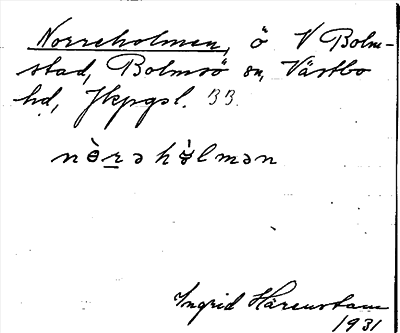 Norreholmen, ö V Bolm-
stad, Bolmsö sn, Västbo
hd, Jkpgsl. 33.
nò̤rə hò̤lmən
Ingrid Härenstam
1931